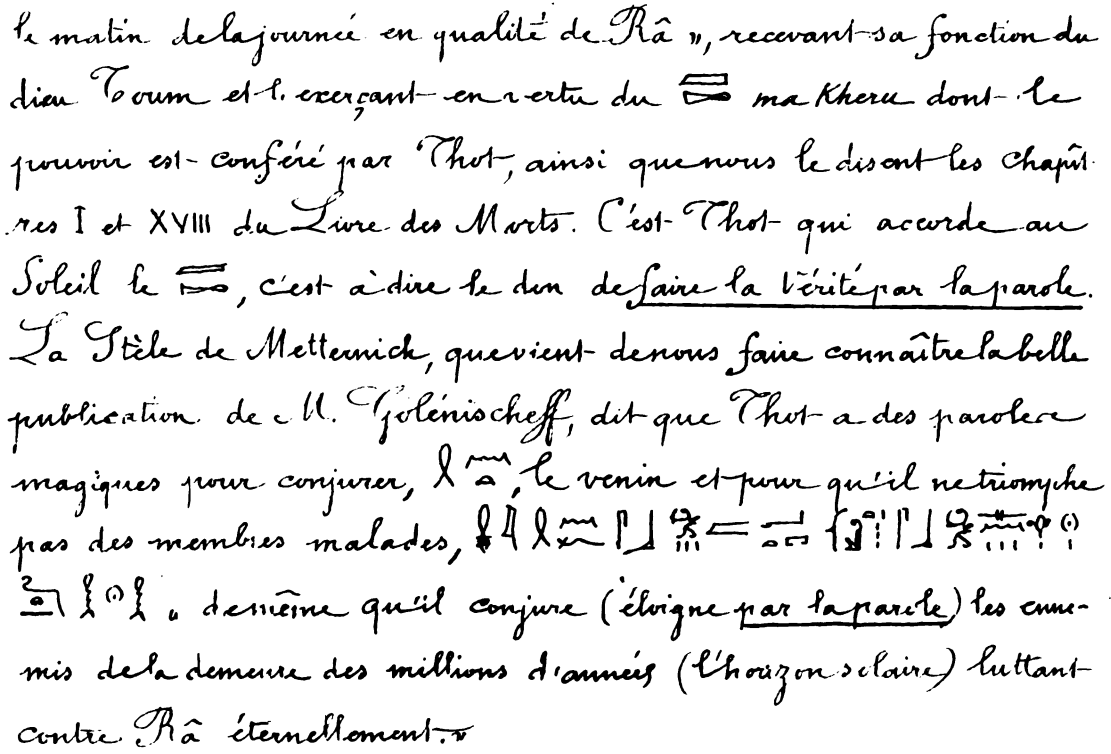 le matin de la journée en qualité de Râ », recevant sa fonction du
dieu Toum et l'exerçant en vertu du ma Kheru dont le
pouvoir est conféré par Thot, ainsi que nous le disent les chapît
res I et XVIII du Livre des Morts. C'est Thot qui accorde au
Soleil le , c'est à dire le don de faire la Vérité par la parole.
La Stèle de Metternich, que vient de nous faire connaître la belle
publication de M. Golénischeff, dit que Thot a des paroles
magiques pour conjurer, , le venin et pour qu'il ne triomphe
pas des membres malades,
" de même qu'il conjure (éloigne par la parole) les enne-
mis de la demeure des millions d'années (l'horizon solaire) luttant
contre Râ éternellement. »